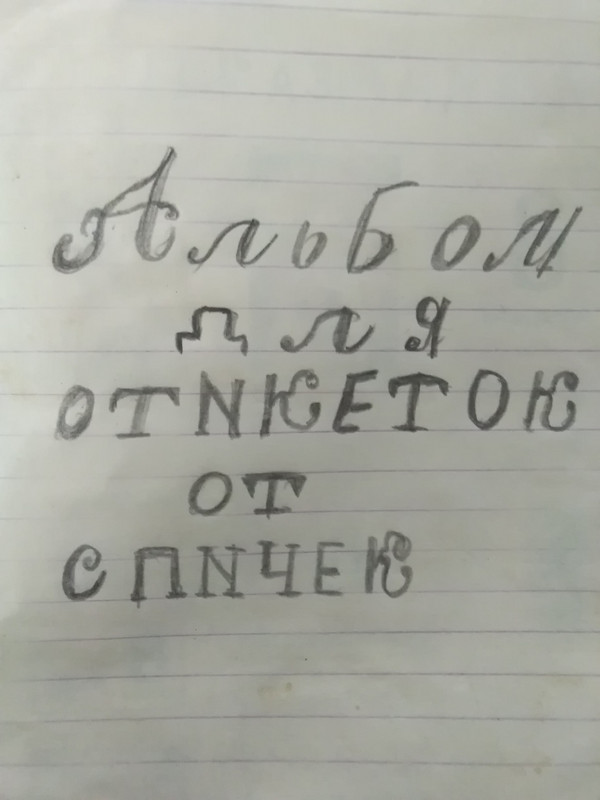 Альбом
для
ОТИКЕТОК
ОТ
СПИЧЕК